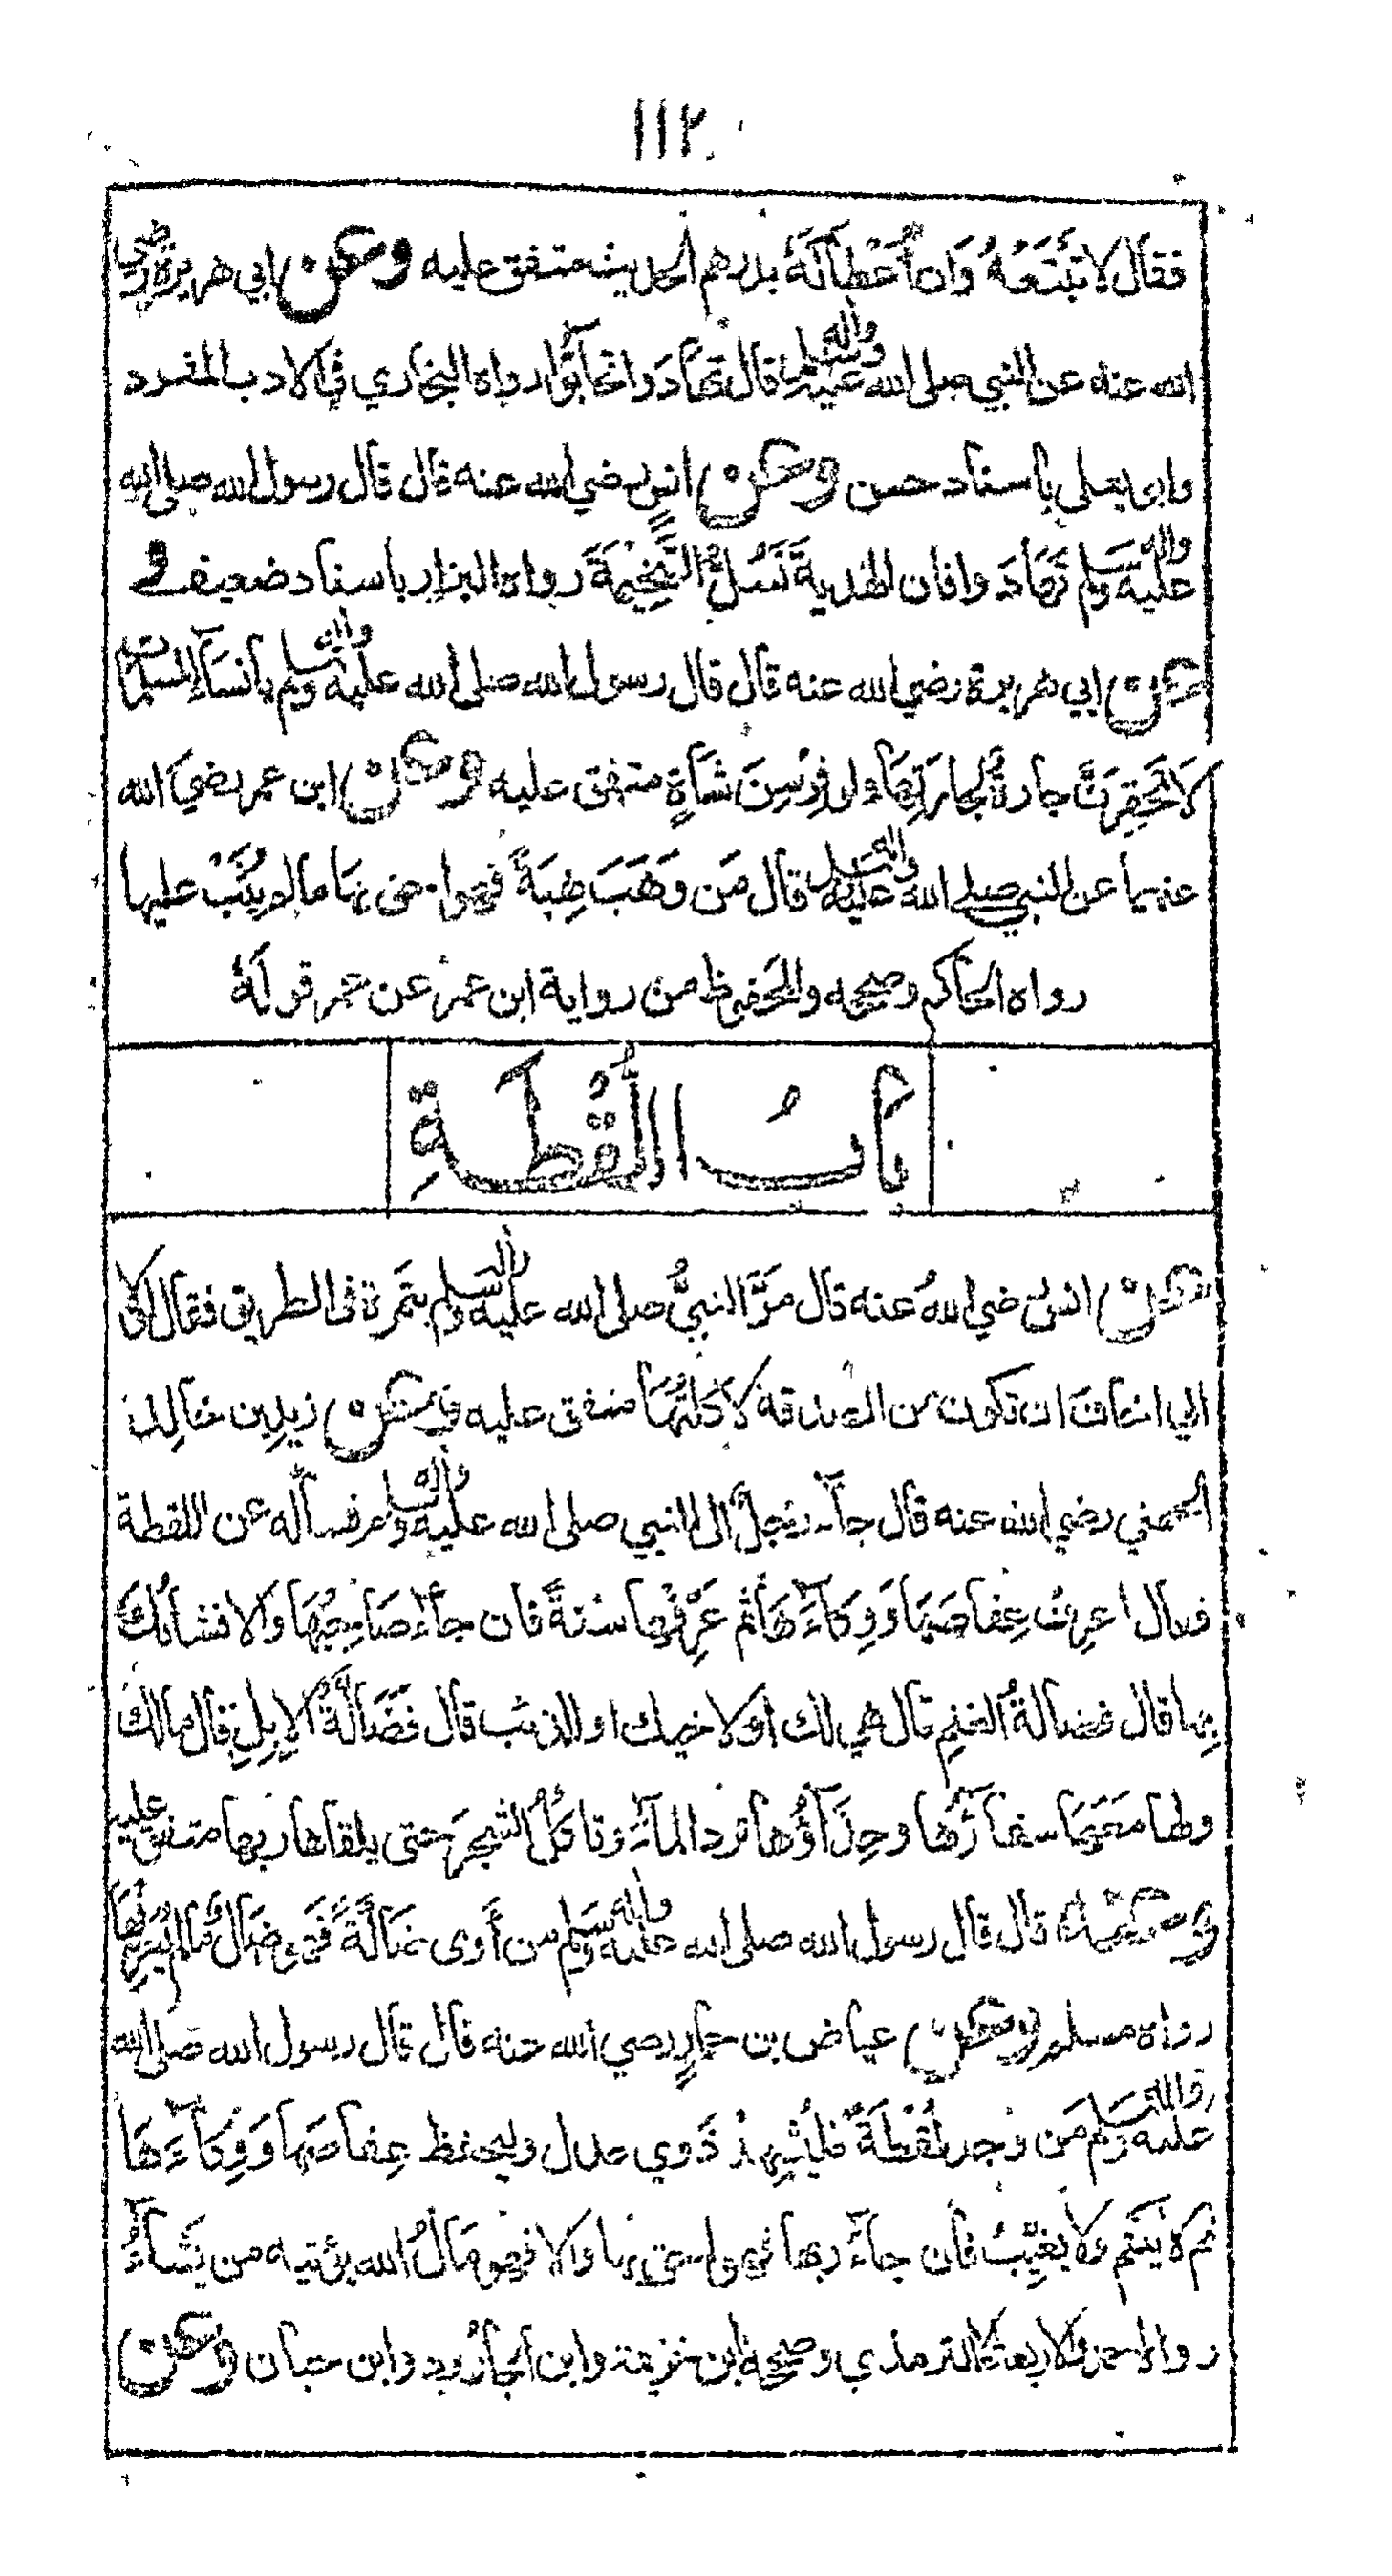 ١١٢
فقال لا تَبْتَعْهُ وَان اَعْطَاكَهُ بدرهم الحديث متفق عليه وعن ابي هريرة رضي
الله عنه عن النبي صلى الله عليه واله وسلم قال تهادَوا تحابّوا رواه البخاري في الادب المفرد
وابو يعلى باسناد حسن وعن انس رضي الله عنه قال قال رسول الله صلى الله
عليه واله وسلم تهادَوا فان الهدية تَسُلُّ السَّخِيْمَةَ رواه البزار باسناد ضعيف و
عن ابي هريرة رضي الله عنه قال قال رسول الله صلى الله عليه واله وسلم يا نساءَ المسلمات
لَا تَحْقِرَنَّ جارةٌ لجارَتِهَا ولو فِرْسِنَ شَاةٍ متفق عليه وعن ابن عمر رضي الله
عنهما عن النبي صلى الله عليه واله وسلم قال مَن وَهَبَ هِبَةً فهو احق بها ما لم يُثَبْ عليها
رواه الحاكم وصححه والمحفوظ من رواية ابن عمر عن عمر قولَهُ
بابُ اللُّقْطَةِ
عن انس رضي اللهُ عنه قال مَرَّ النبيُّ صلى الله عليه واله وسلم بتمرة فى الطريق فقال لولا
اني اخاف ان تكون من الصدقة لاكلتُهَا متفق عليه وعن زيد بن خالد
الجهني رضي الله عنه قال جآء رجلٌ الى النبي صلى الله عليه واله وسلم فسأله عن اللقطة
فقال اعرف عِفاصَها وَوِكآءَهَا ثم عَرِّفْها سَنةً فان جآءَ صَاحِبُهَا والا فشانُكَ
بِها قال فضالةُ الغنمِ قال هي لك او لاخيك او للذئب قال فَضَالَّةُ الاِبِلِ قال مالكَ
ولها مَعَهَا سقآؤُها وحِذَآؤُها ترد المآءَ وتاكُلُ الشجرَ حتى يلقاها ربها متفق عليه
وعنه قال قال رسول الله صلى الله عليه واله وسلم من آوى ضَالَّةً فَهو ضَالٌّ مالم يُعَرِّفها
رواه مسلم وعن عياض بن حمارٍ رضي الله عنه قال قال رسول الله صلى الله
عليه واله وسلم مَن وَجد لُقْطَةً فليُشهِدْ ذَوي عدل وليحفظ عِفاصَها وَوِكآءَهَا
ثم لا يَكتم ولا يُغَيِّبُ فان جآءَ ربها فهو احق بها والا فهو مَالُ الله يؤتيه من يَشَآءُ
رواه احمد والاربعة الا الترمذي وصححه ابن خزيمة وابن الجارُود وابن حبان وعن